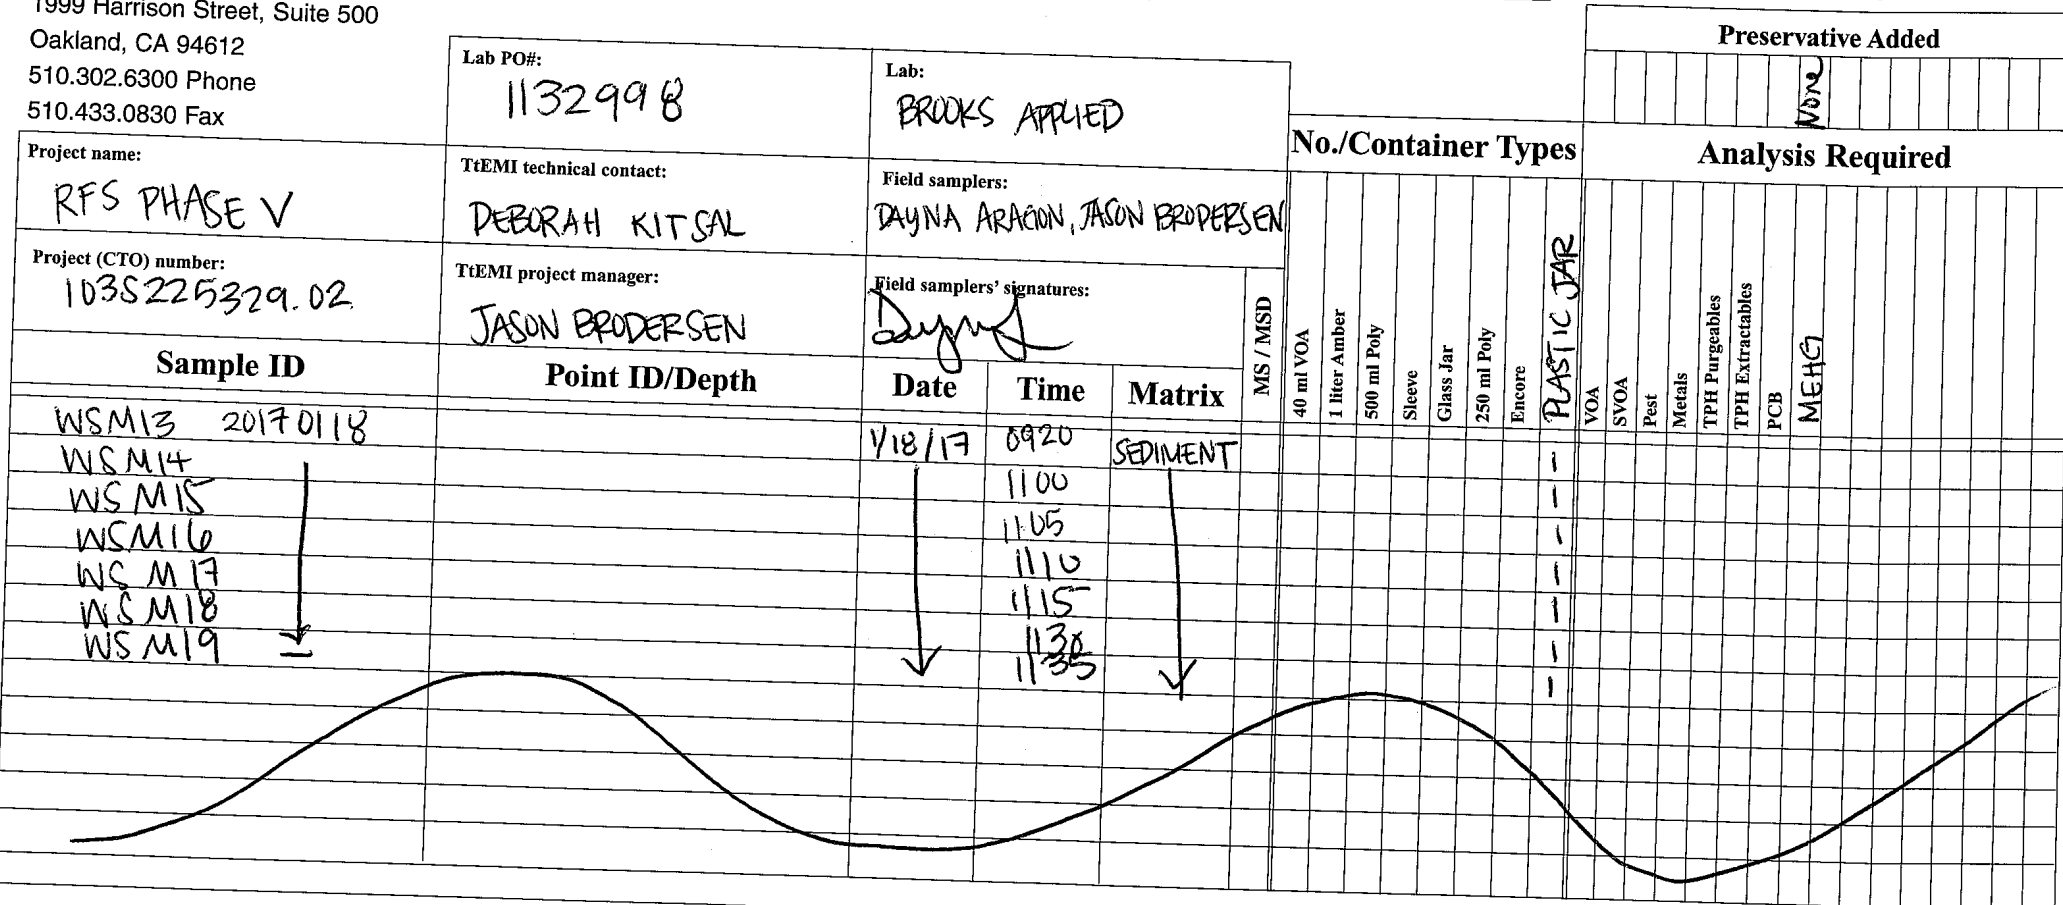 1999 Harrison Street, Suite 500
Oakland, CA 94612
510.302.6300 Phone
510.433.0830 Fax
Preservative Added
None
Lab PO#:
1132998
Lab:
BROOKS APPLIED
No./Container Types
Analysis Required
Project name:
RFS PHASE V
TtEMI technical contact:
DEBORAH KITSAL
Field samplers:
DAYNA ARAGON, JASON BRODERSEN
Project (CTO) number:
103S225329.02
TtEMI project manager:
JASON BRODERSEN
Field samplers' signatures:
MS / MSD
40 ml VOA
1 liter Amber
500 ml Poly
Sleeve
Glass Jar
250 ml Poly
Encore
PLASTIC JAR
VOA
SVOA
Pest
Metals
TPH Purgeables
TPH Extractables
PCB
MEHG
Sample ID Point ID/Depth Date Time Matrix
WSM13 20170118 1/18/17 0920 SEDIMENT 1
WSM14 1100 1
WSM15 1105 1
WSM16 1110 1
WSM17 1115 1
WSM18 1130 1
WSM19 1135 1